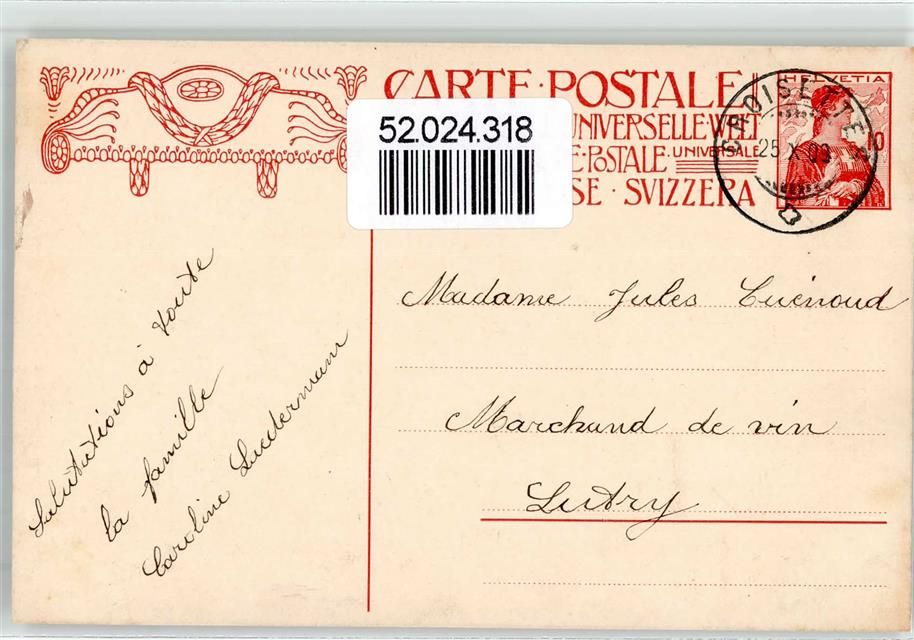 CARTE·POSTALE
52.024.318
UNIVERSELLE·WELT
E·POSTALE· UNIVERSALE
SE · SVIZZERA
HELVETIA
10
25 X 09
Madame Jules Cuénoud
Marchand de vin
Lutry
Salutations à toute
la famille
Caroline Luedermann